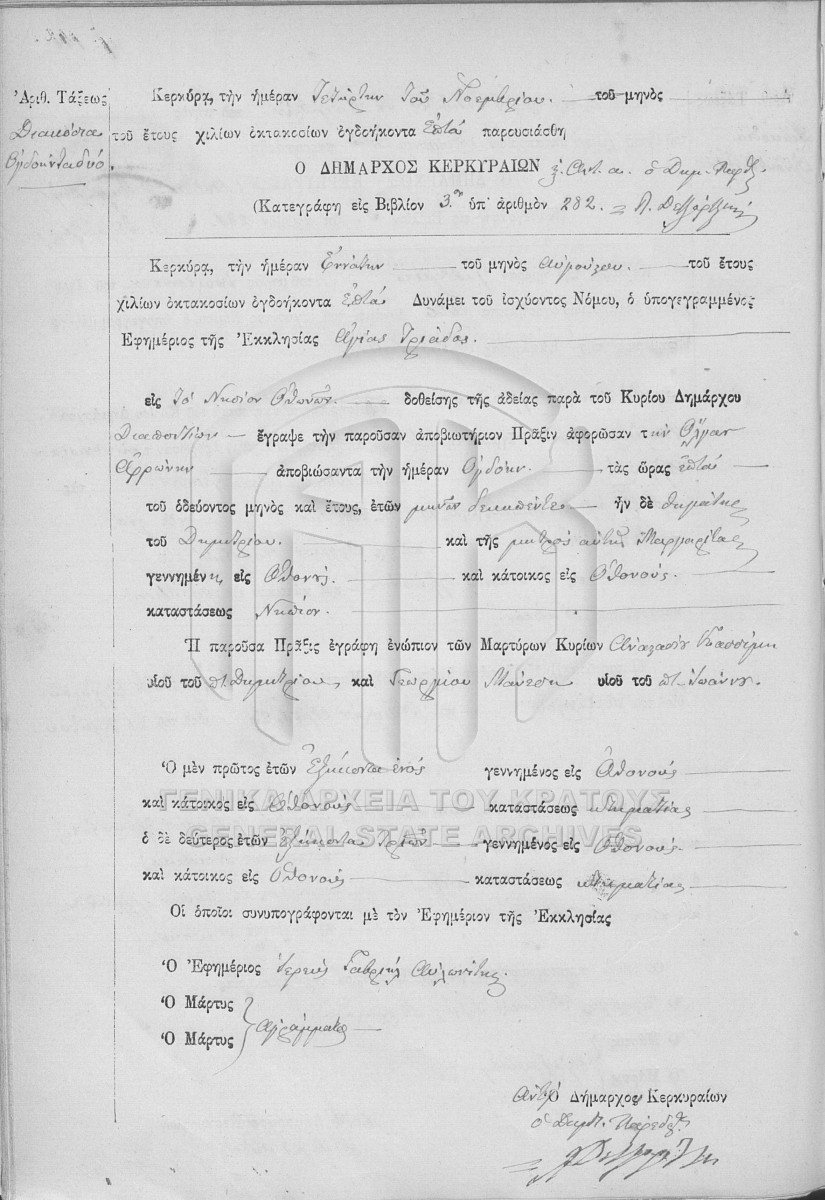 Ἀριθ. Τάξεως
Διακόσια
Ὀγδοήκοντα δύο
Κερκύρα, τὴν ἡμέραν Τετάρτην τοῦ Νοεμβρίου. τοῦ μηνὸς
τοῦ ἔτους χιλίων ὀκτακοσίων ὀγδοήκοντα ἑπτά παρουσιάσθη
Ο ΔΗΜΑΡΧΟΣ ΚΕΡΚΥΡΑΙΩΝ
(Κατεγράφη εἰς Βιβλίον 3ον ὑπ' ἀριθμὸν 282.
Κερκύρᾳ, τὴν ἡμέραν Ἐννάτην τοῦ μηνὸς Αὐγούστου. τοῦ ἔτους
χιλίων ὀκτακοσίων ὀγδοήκοντα ἑπτά Δυνάμει τοῦ ἰσχύοντος Νόμου, ὁ ὑπογεγραμμένος
Ἐφημέριος τῆς Ἐκκλησίας Ἁγίας Τριάδος.
εἰς τὸ Νησίον Ὀθωνῶν. δοθείσης τῆς ἀδείας παρὰ τοῦ Κυρίου Δημάρχου
Διαποντίων ἔγραψε τὴν παροῦσαν ἀποβιωτήριον Πρᾶξιν ἀφορῶσαν τὴν Ὄλγαν
ἀποβιώσαντα τὴν ἡμέραν Ὀγδόην. τὰς ὥρας ἑπτά
τοῦ ὁδεύοντος μηνὸς καὶ ἔτους, ἐτῶν μηνῶν δεκαπέντε ἦν δὲ θυγάτηρ
τοῦ Δημητρίου. καὶ τῆς μητρός αὐτῆς Μαργαρίτας
γεννημένη εἰς Ὀθονούς καὶ κάτοικος εἰς Ὀθονούς.
καταστάσεως Νήπιον.
Ἡ παροῦσα Πρᾶξις ἐγράφη ἐνώπιον τῶν Μαρτύρων Κυρίων Ἀναστασίου Κασσίμη
υἱοῦ τοῦ π. Δημητρίου καὶ Γεωργίου Μάνεση υἱοῦ τοῦ π. Ἰωάννου.
Ὁ μὲν πρῶτος ἐτῶν Ἑξήκοντα ἑνός γεννημένος εἰς Ὀθονούς
καὶ κάτοικος εἰς Ὀθονούς καταστάσεως κτηματίας
ὁ δὲ δεύτερος ἐτῶν ἑξήκοντα τριῶν γεννημένος εἰς Ὀθονούς.
καὶ κάτοικος εἰς Ὀθονούς καταστάσεως κτηματίας
Οἱ ὁποῖοι συνυπογράφονται μὲ τὸν Ἐφημέριον τῆς Ἐκκλησίας
Ὁ Ἐφημέριος Ἱερεύς Γαβριήλ Αὐλωνίτης.
Ὁ Μάρτυς
Ἀγράμματοι
Ὁ Μάρτυς
Ὁ Δήμαρχος Κερκυραίων
ὁ Δημ. Πάρεδρος
ΓΕΝΙΚΑ ΑΡΧΕΙΑ ΤΟΥ ΚΡΑΤΟΥΣ
GENERAL STATE ARCHIVES